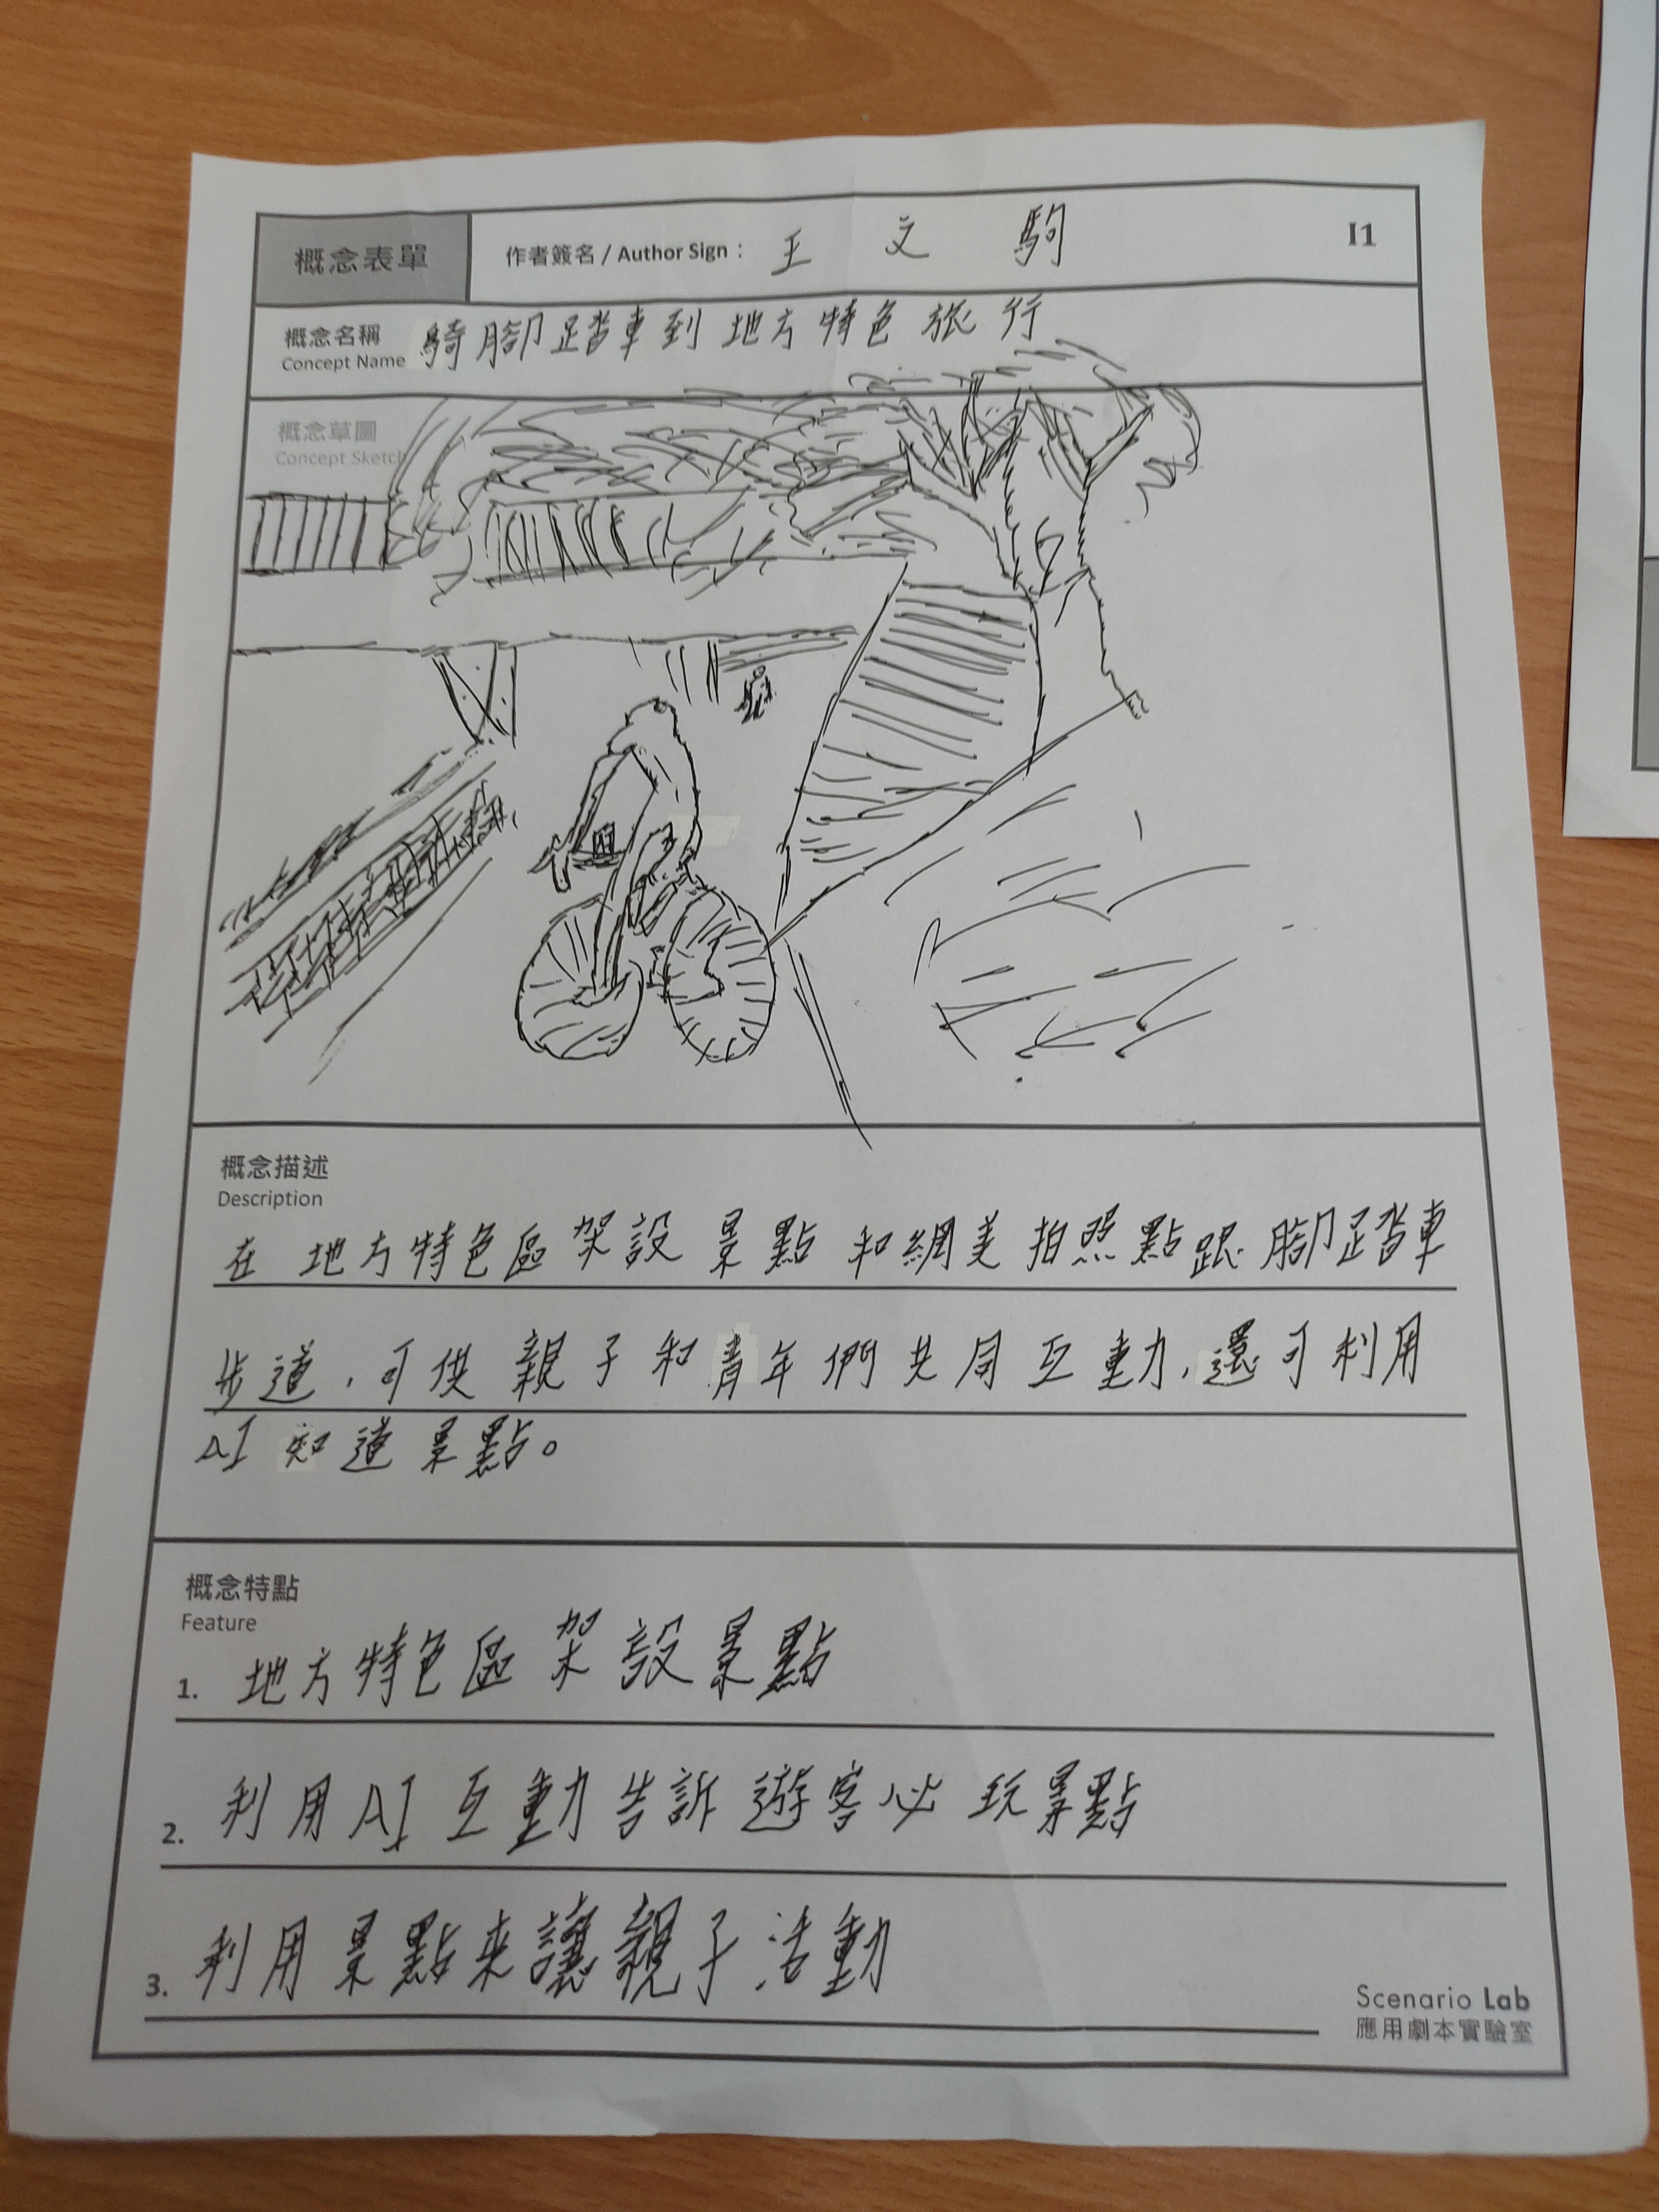 概念表單
作者簽名 / Author Sign： 王文駒
I1
概念名稱
Concept Name
騎腳踏車到地方特色旅行
概念草圖
Concept Sketch
概念描述
Description
在地方特色區架設景點和網美拍照點跟腳踏車
步道，可供親子和青年們共同互動，還可利用
AI知道景點。
概念特點
Feature
1. 地方特色區架設景點
2. 利用AI互動告訴遊客必玩景點
3. 利用景點來讓親子活動
Scenario Lab
應用劇本實驗室